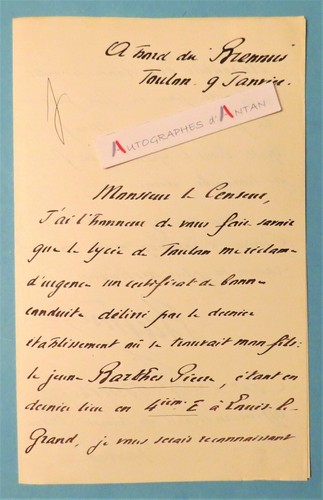 A bord du Brennus
Toulon 9 Janvier.
AUTOGRAPHES d'ANTAN
Monsieur le Censeur,
J'ai l'honneur de vous faire savoir
que le lycée de Toulon me réclame
d'urgence un certificat de bonne
conduite délivré par le dernier
établissement où se trouvait mon fils:
le jeune Barthes Pierre, étant en
dernier lieu en 4ième E à Louis-le-
Grand, je vous serais reconnaissant